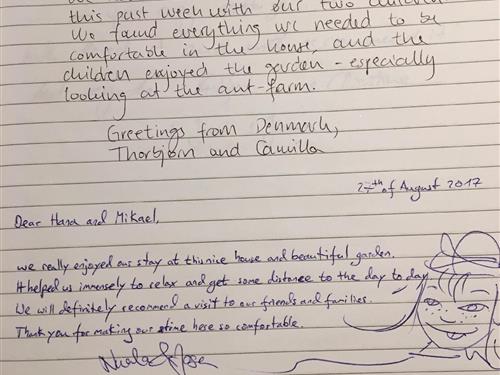 this past week with our two children
We found everything we needed to be
comfortable in the house, and the
children enjoyed the garden - especially
looking at the ant-farm.
Greetings from Denmark,
Thorbjørn and Camilla
27th of August 2017
Dear Hana and Mikael,
we really enjoyed our stay at this nice house and beautiful garden.
It helped us immensely to relax and get some distance to the day to day.
We will definitely recommend a visit to our friends and families.
Thank you for making our time here so comfortable.